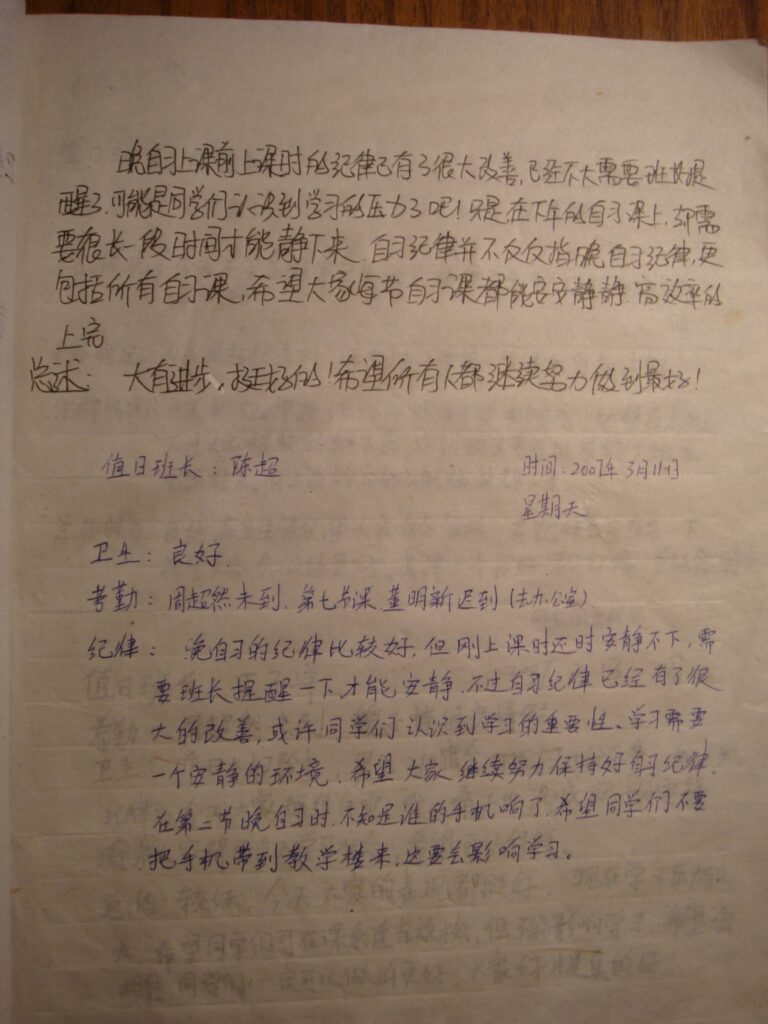 晚自习上课前上课时的纪律已有了很大改善,已经不大需要班长提
醒了.可能是同学们认识到学习的压力了吧!只是在下午的自习课上,却需
要很长一段时间才能静下来.自习纪律并不仅仅指晚自习纪律,更
包括所有自习课,希望大家每节自习课都能安安静静.高效率的
上完
总述: 大有进步,挺好的!希望所有人都继续努力做到最好!
值日班长:陈超
时间:2007年3月11日
星期天
卫生:良好.
考勤:周超然未到.第七节课董明新迟到(去办公室)
纪律: 晚自习的纪律比较好.但刚上课时还时安静不下,需
要班长提醒一下,才能安静.不过自习纪律已经有了很
大的改善,或许同学们认识到学习的重要性、学习需要
一个安静的环境.希望大家继续努力保持好自习纪律.
在第二节晚自习时.不知是谁的手机响了.希望同学们不要
把手机带到教学楼来,这要会影响学习。